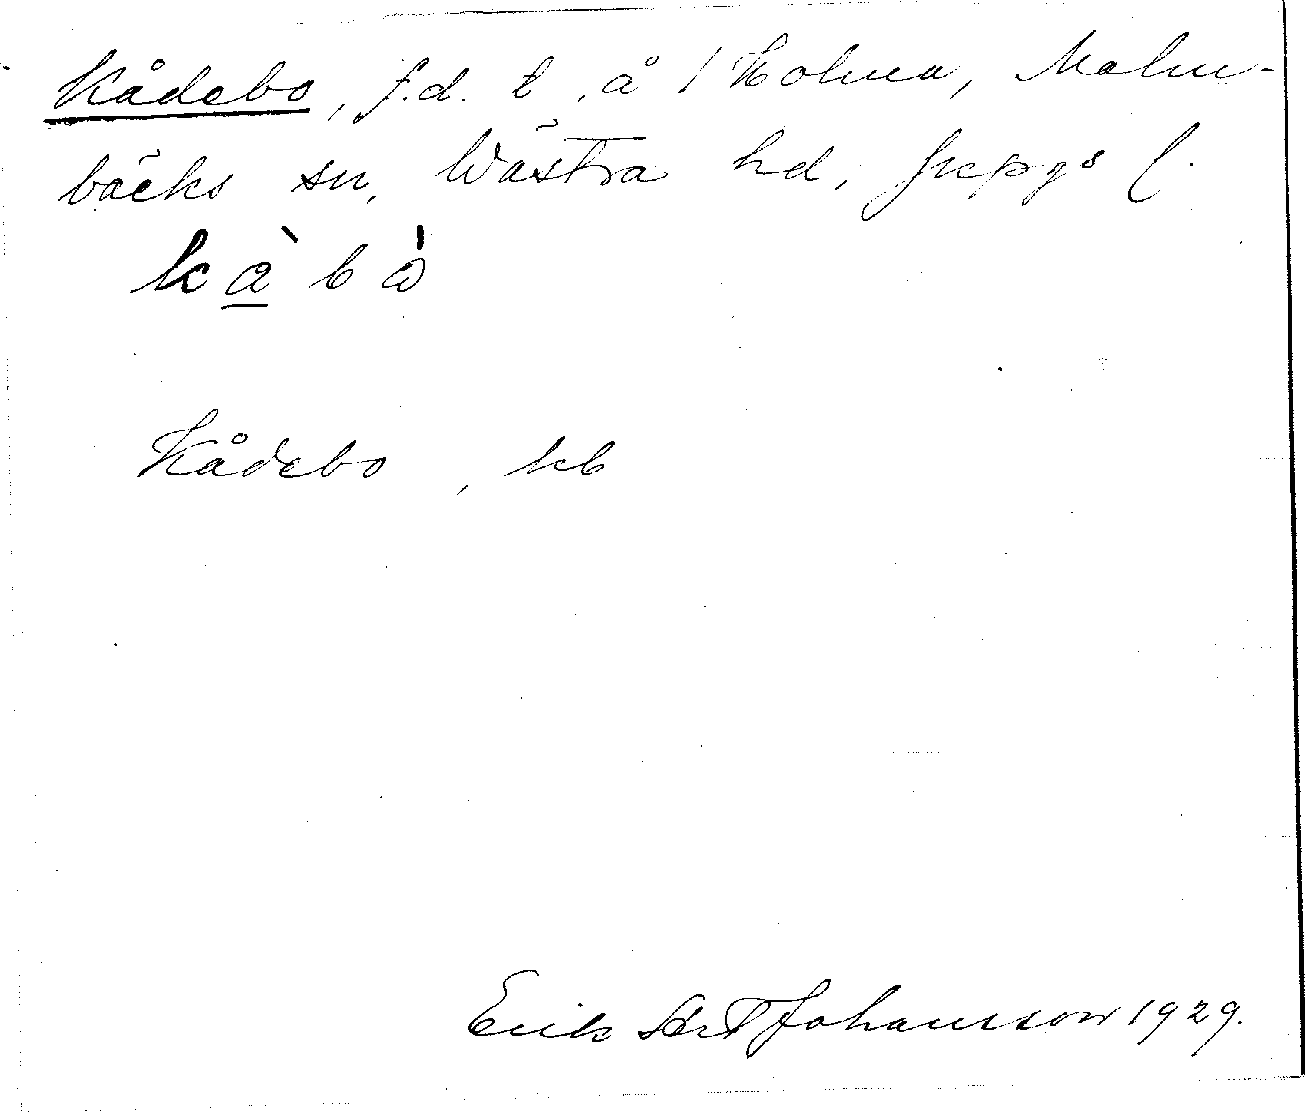 Kådebo, f.d. t. å / Holma, Malm-
bäcks sn, Västra hd, Jkpgs l.
kåbò
Kådebo, kb
Erik Johansson 1929.